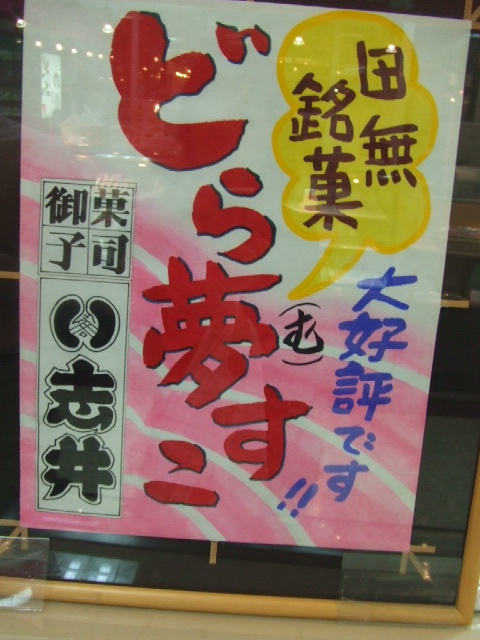 田無
銘菓
大好評です!!
どら夢すこ
(む)
御菓子司
い志井